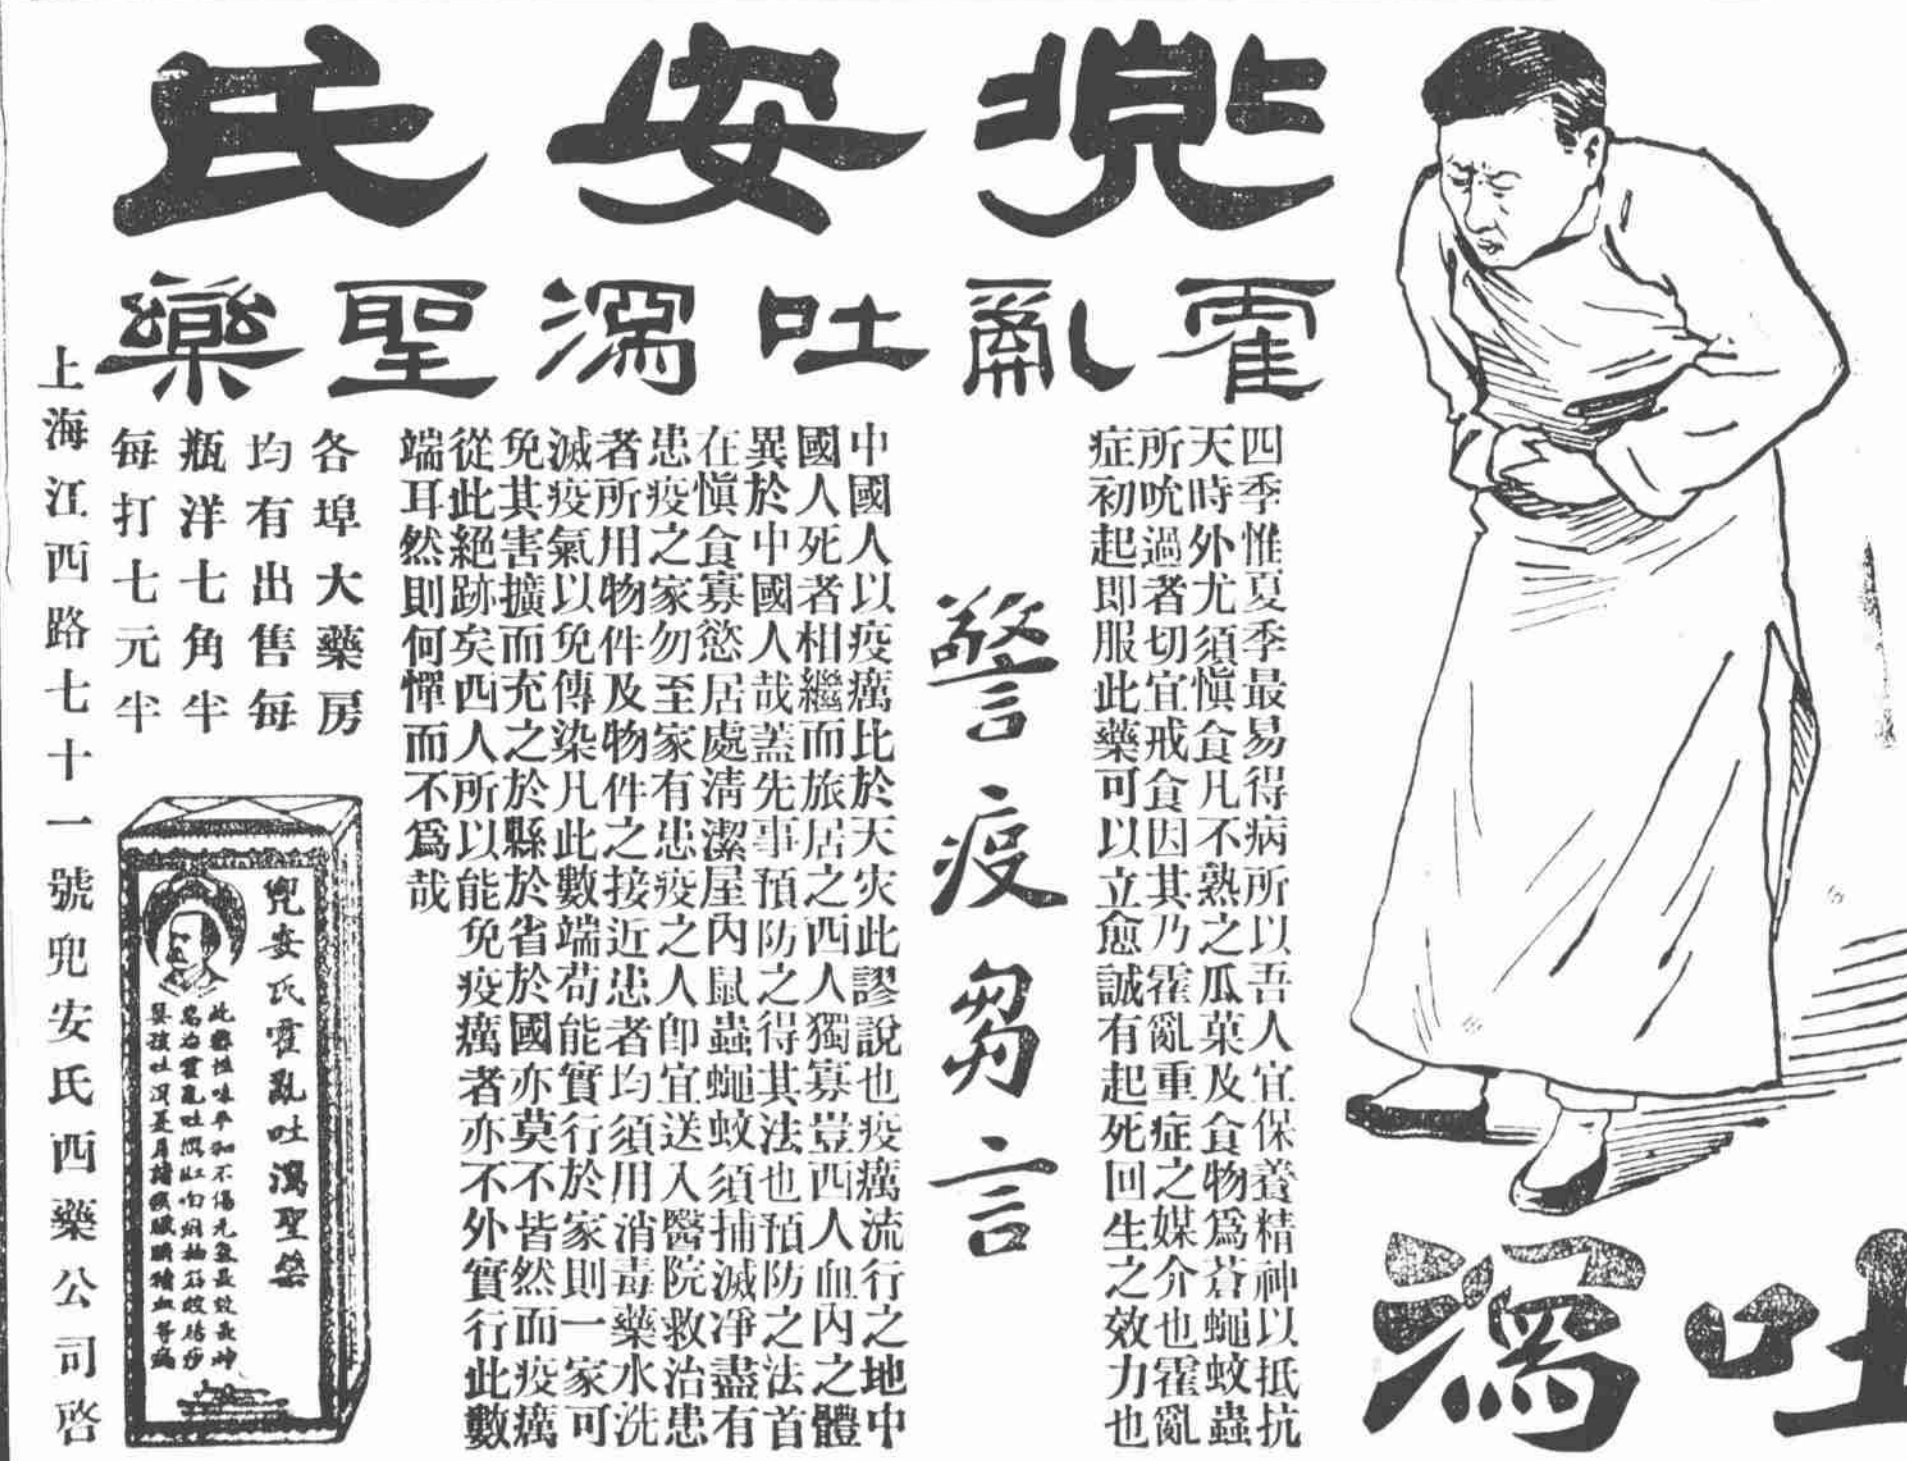 兜安氏
霍亂吐瀉聖藥
四季惟夏季最易得病所以吾人宜保養精神以抵抗
天時外尤須愼食凡不熟之瓜菓及食物爲蒼蠅蚊蟲
所吮過者切宜戒食因其乃霍亂重症之媒介也霍亂
症初起即服此藥可以立愈誠有起死回生之效力也
警疫芻言
中國人以疫癘比於天灾此謬說也疫癘流行之地中
國人死者相繼而旅居之西人獨寡豈西人血內之體
異於中國人哉蓋先事預防之得其法也預防之法首
在愼食寡慾居處淸潔屋內鼠蟲蠅蚊須捕滅凈盡有
患疫之家勿至家有患疫之人卽宜送入醫院救治患
者所用物件及物件之接近患者均須用消毒藥水洗
滅疫氣以免傳染凡此數端苟能實行於家則一家可
免其害擴而充之於縣於省於國亦莫不皆然而疫癘
從此絕跡矣西人所以能免疫癘者亦不外實行此數
端耳然則何憚而不爲哉
各埠大藥房
均有出售每
瓶洋七角半
每打七元半
兜安氏霍亂吐瀉聖藥
此藥性味平和不傷元氣最效最神
上海江西路七十一號兜安氏西藥公司啓
吐瀉